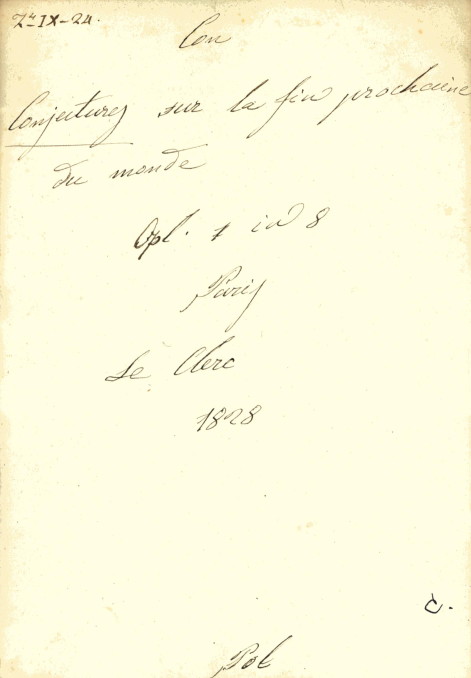 Zn IX-24.
Con
Conjectures sur la fin prochaine
du monde
Opl. 1 in 8
Paris
Le Clerc
1828
C.
Pol